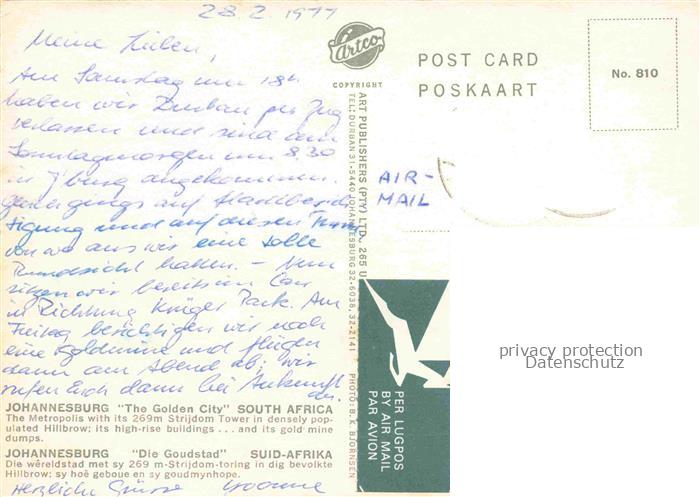 28.2.1977
Meine Lieben,
Am Samstag um 18h
haben wir Durban per Zug
verlassen und sind am
Sonntagmorgen um 8.30
in J'burg angekommen.
gings auf Stadtbesich-
tigung und auf diesen Turm
von wo aus wir eine tolle
Rundsicht hatten. – Nun
sitzen wir bereits im Car
in Richtung Krüger Park. Am
Freitag besichtigen wir noch
eine Goldmine und fliegen
dann am Abend ab, wir
rufen Euch dann bei Ankunft
an.
JOHANNESBURG "The Golden City" SOUTH AFRICA
The Metropolis with its 269m Strijdom Tower in densely pop-
ulated Hillbrow; its high-rise buildings . . . and its gold mine
dumps.
JOHANNESBURG "Die Goudstad" SUID-AFRIKA
Die wêreldstad met sy 269 m-Strijdom-toring in dig bevolkte
Hillbrow; sy hoë geboue en sy goudmynhope.
Herzliche Grüsse Yvonne
Artco
COPYRIGHT
ART PUBLISHERS (PTY) LTD., 265 U
TEL: DURBAN 31-5440 JOHANNESBURG 32-6038, 32-2141
PHOTO: B. K. BJORNSEN
POST CARD
POSKAART
No. 810
AIR-
MAIL
PER LUGPOS
BY AIR MAIL
PAR AVION
privacy protection
Datenschutz